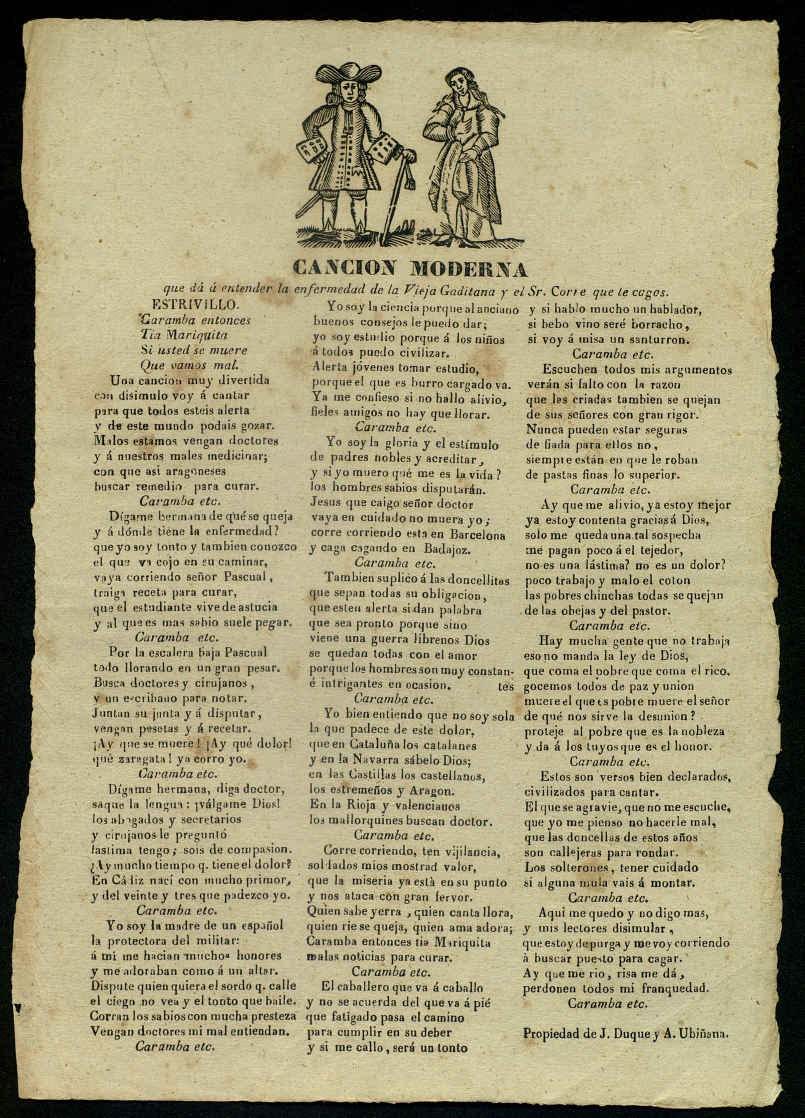 CANCION MODERNA
que dá á entender la enfermedad de la Vieja Gaditana y el Sr. Corre que te cagas.
ESTRIVILLO.
Caramba entonces
Tia Mariquita
Si usted se muere
Que vamos mal.
Una cancion muy divertida
con disimulo voy á cantar
para que todos esteis alerta
y de este mundo podais gozar.
Malos estamos vengan doctores
y á nuestros males medicinar;
con que asi aragoneses
buscar remedio para curar.
Caramba etc.
Dígame hermana de qué se queja
y á dónde tiene la enfermedad?
que yo soy tonto y tambien conozco
el que va cojo en su caminar,
vaya corriendo señor Pascual,
traiga receta para curar,
que el estudiante vive de astucia
y al que es mas sabio suele pegar.
Caramba etc.
Por la escalera baja Pascual
todo llorando en un gran pesar.
Busca doctores y cirujanos,
y un escribano para notar.
Juntan su junta y á disputar,
vengan pesetas y á recetar.
¡Ay que se muere! ¡Ay qué dolor!
qué zaragata! ya corro yo.
Caramba etc.
Dígame hermana, diga doctor,
saque la lengua: ¡válgame Dios!
los abogados y secretarios
y cirujanos le preguntó
lastima tengo; sois de compasion.
¿Ay mucho tiempo q. tiene el dolor?
En Cádiz nací con mucho primor,
y del veinte y tres que padezco yo.
Caramba etc.
Yo soy la madre de un español
la protectora del militar:
á mi me hacian muchos honores
y me adoraban como á un altar.
Dispute quien quiera el sordo q. calle
el ciego no vea y el tonto que baile.
Corran los sabios con mucha presteza
Vengan doctores mi mal entiendan.
Caramba etc.
Yo soy la ciencia porque al anciano
buenos consejos le puedo dar;
yo soy estudio porque á los niños
á todos puedo civilizar.
Alerta jóvenes tomar estudio,
porque el que es burro cargado va.
Ya me confieso si no hallo alivio,
fieles amigos no hay que llorar.
Caramba etc.
Yo soy la gloria y el estímulo
de padres nobles y acreditar,
y si yo muero qué me es la vida?
los hombres sabios disputarán.
Jesus que caigo señor doctor
vaya en cuidado no muera yo;
corre corriendo esta en Barcelona
y caga cagando en Badajoz.
Caramba etc.
Tambien suplico á las doncellitas
que sepan todas su obligacion,
que esten alerta si dan palabra
que sea pronto porque sino
viene una guerra líbrenos Dios
se quedan todas con el amor
porque los hombres son muy constan-
é intrigantes en ocasion. tes
Caramba etc.
Yo bien entiendo que no soy sola
la que padece de este dolor,
que en Cataluña los catalanes
y en la Navarra sábelo Dios;
en las Castillas los castellanos,
los estremeños y Aragon.
En la Rioja y valencianos
los mallorquines buscan doctor.
Caramba etc.
Corre corriendo, ten vijilancia,
soldados mios mostrad valor,
que la miseria ya está en su punto
y nos ataca con gran fervor.
Quien sabe yerra, quien canta llora,
quien rie se queja, quien ama adora;
Caramba entonces tia Mariquita
malas noticias para curar.
Caramba etc.
El caballero que va á caballo
y no se acuerda del que va á pié
que fatigado pasa el camino
para cumplir en su deber
y si me callo, será un tonto
y si hablo mucho un hablador,
si bebo vino seré borracho,
si voy á misa un santurron.
Caramba etc.
Escuchen todos mis argumentos
verán si falto con la razon
que las criadas tambien se quejan
de sus señores con gran rigor.
Nunca pueden estar seguras
de fiada para ellos no,
siempre están en que le roban
de pastas finas lo superior.
Caramba etc.
Ay que me alivio, ya estoy mejor
ya estoy contenta gracias á Dios,
solo me queda una tal sospecha
me pagan poco á el tejedor,
no es una lástima? no es un dolor?
poco trabajo y malo el coton
las pobres chinchas todas se quejan
de las obejas y del pastor.
Caramba etc.
Hay mucha gente que no trabaja
eso no manda la ley de Dios,
que coma el pobre que coma el rico.
gocemos todos de paz y union
muere el que es pobre muere el señor
de qué nos sirve la desunion?
proteje al pobre que es la nobleza
y da á los tuyos que es el honor.
Caramba etc.
Estos son versos bien declarados,
civilizados para cantar.
El que se agravie, que no me escuche,
que yo me pienso no hacerle mal,
que las doncellas de estos años
son callejeras para rondar.
Los solterones, tener cuidado
si alguna mula vais á montar.
Caramba etc.
Aqui me quedo y no digo mas,
y mis lectores disimular,
que estoy de purga y me voy corriendo
à buscar puesto para cagar.
Ay que me rio, risa me dá,
perdonen todos mi franquedad.
Caramba etc.
Propiedad de J. Duque y A. Ubiñana.